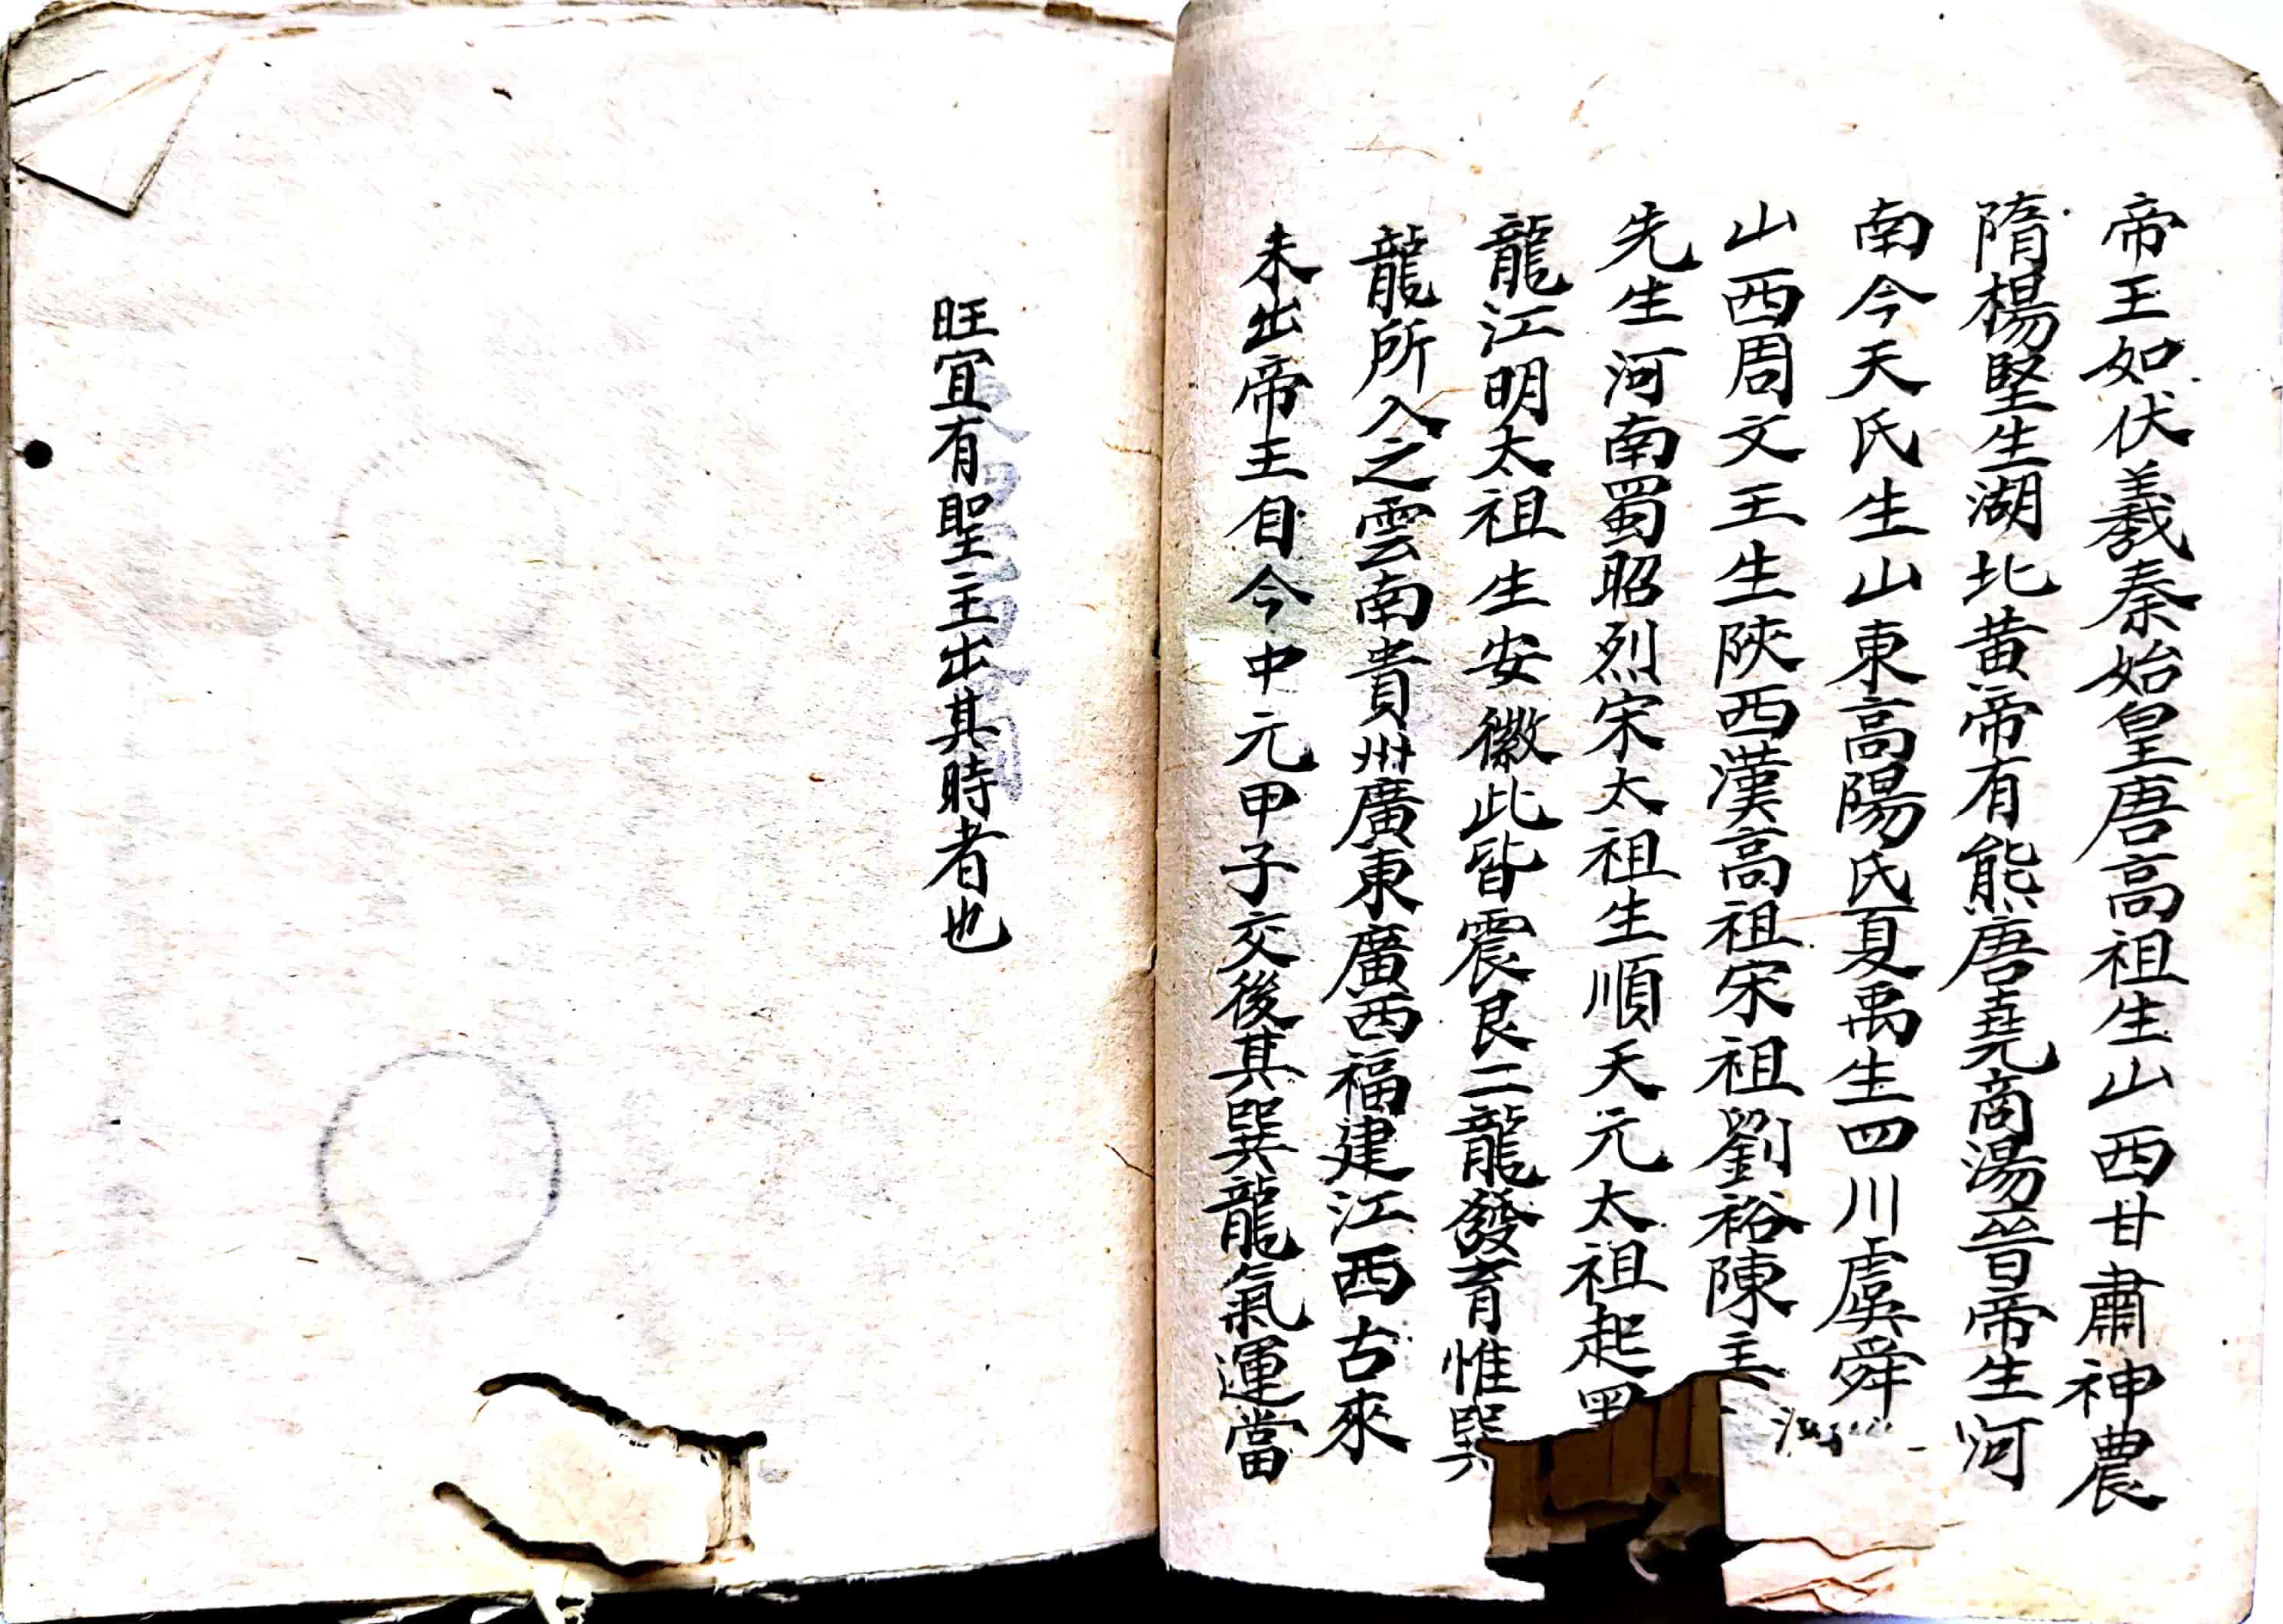 帝王如伏羲秦始皇唐高祖生山西甘肅神農
隋楊堅生湖北黃帝有熊唐堯商湯晉帝生河
南今天氏生山東高陽氏夏禹生四川虞舜
山西周文王生陝西漢高祖宋祖劉裕陳主
先生河南蜀昭烈宋太祖生順天元太祖起
龍江明太祖生安徽此皆震艮二龍發育惟巽
龍所入之雲南貴州廣東廣西福建江西古來
未出帝王自今中元甲子交後其巽龍氣運當
旺宜有聖主出其時者也